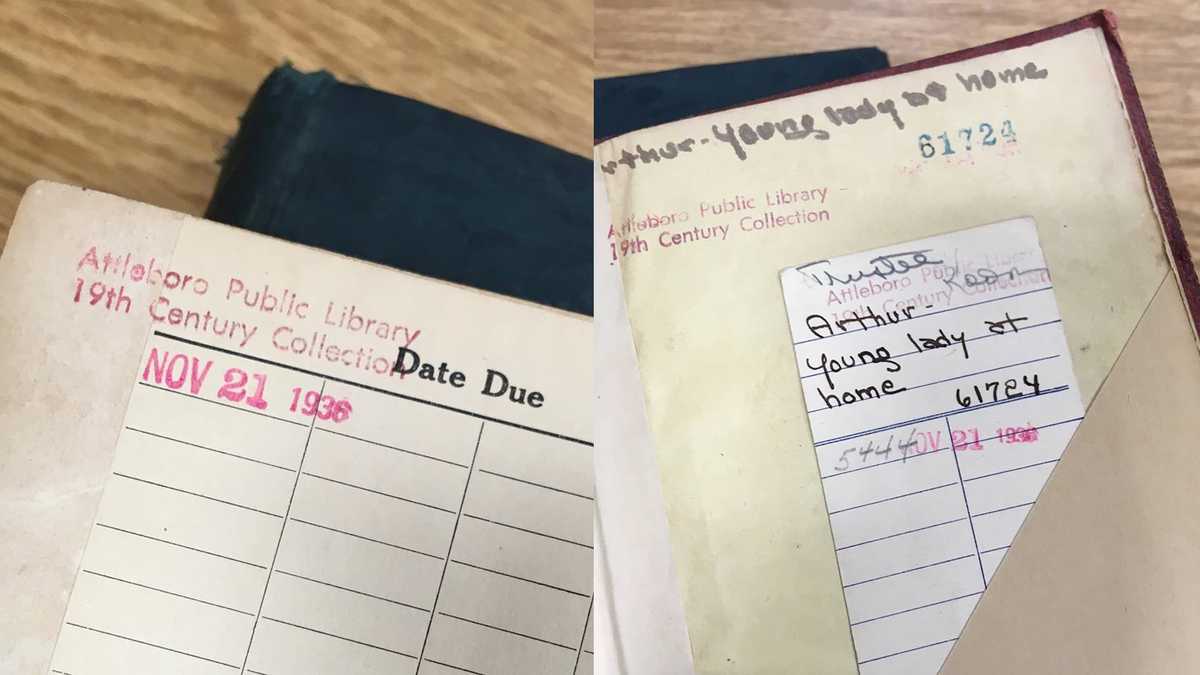 Attleboro Public Library
19th Century Collection
Date Due
NOV 21 1938
Arthur-Young lady at home
61724
Attleboro Public Library
19th Century Collection
Trustee
Room
Attleboro Public Library
19th Century Collection
Arthur-
Young lady at
home 61724
5444 NOV 21 1938